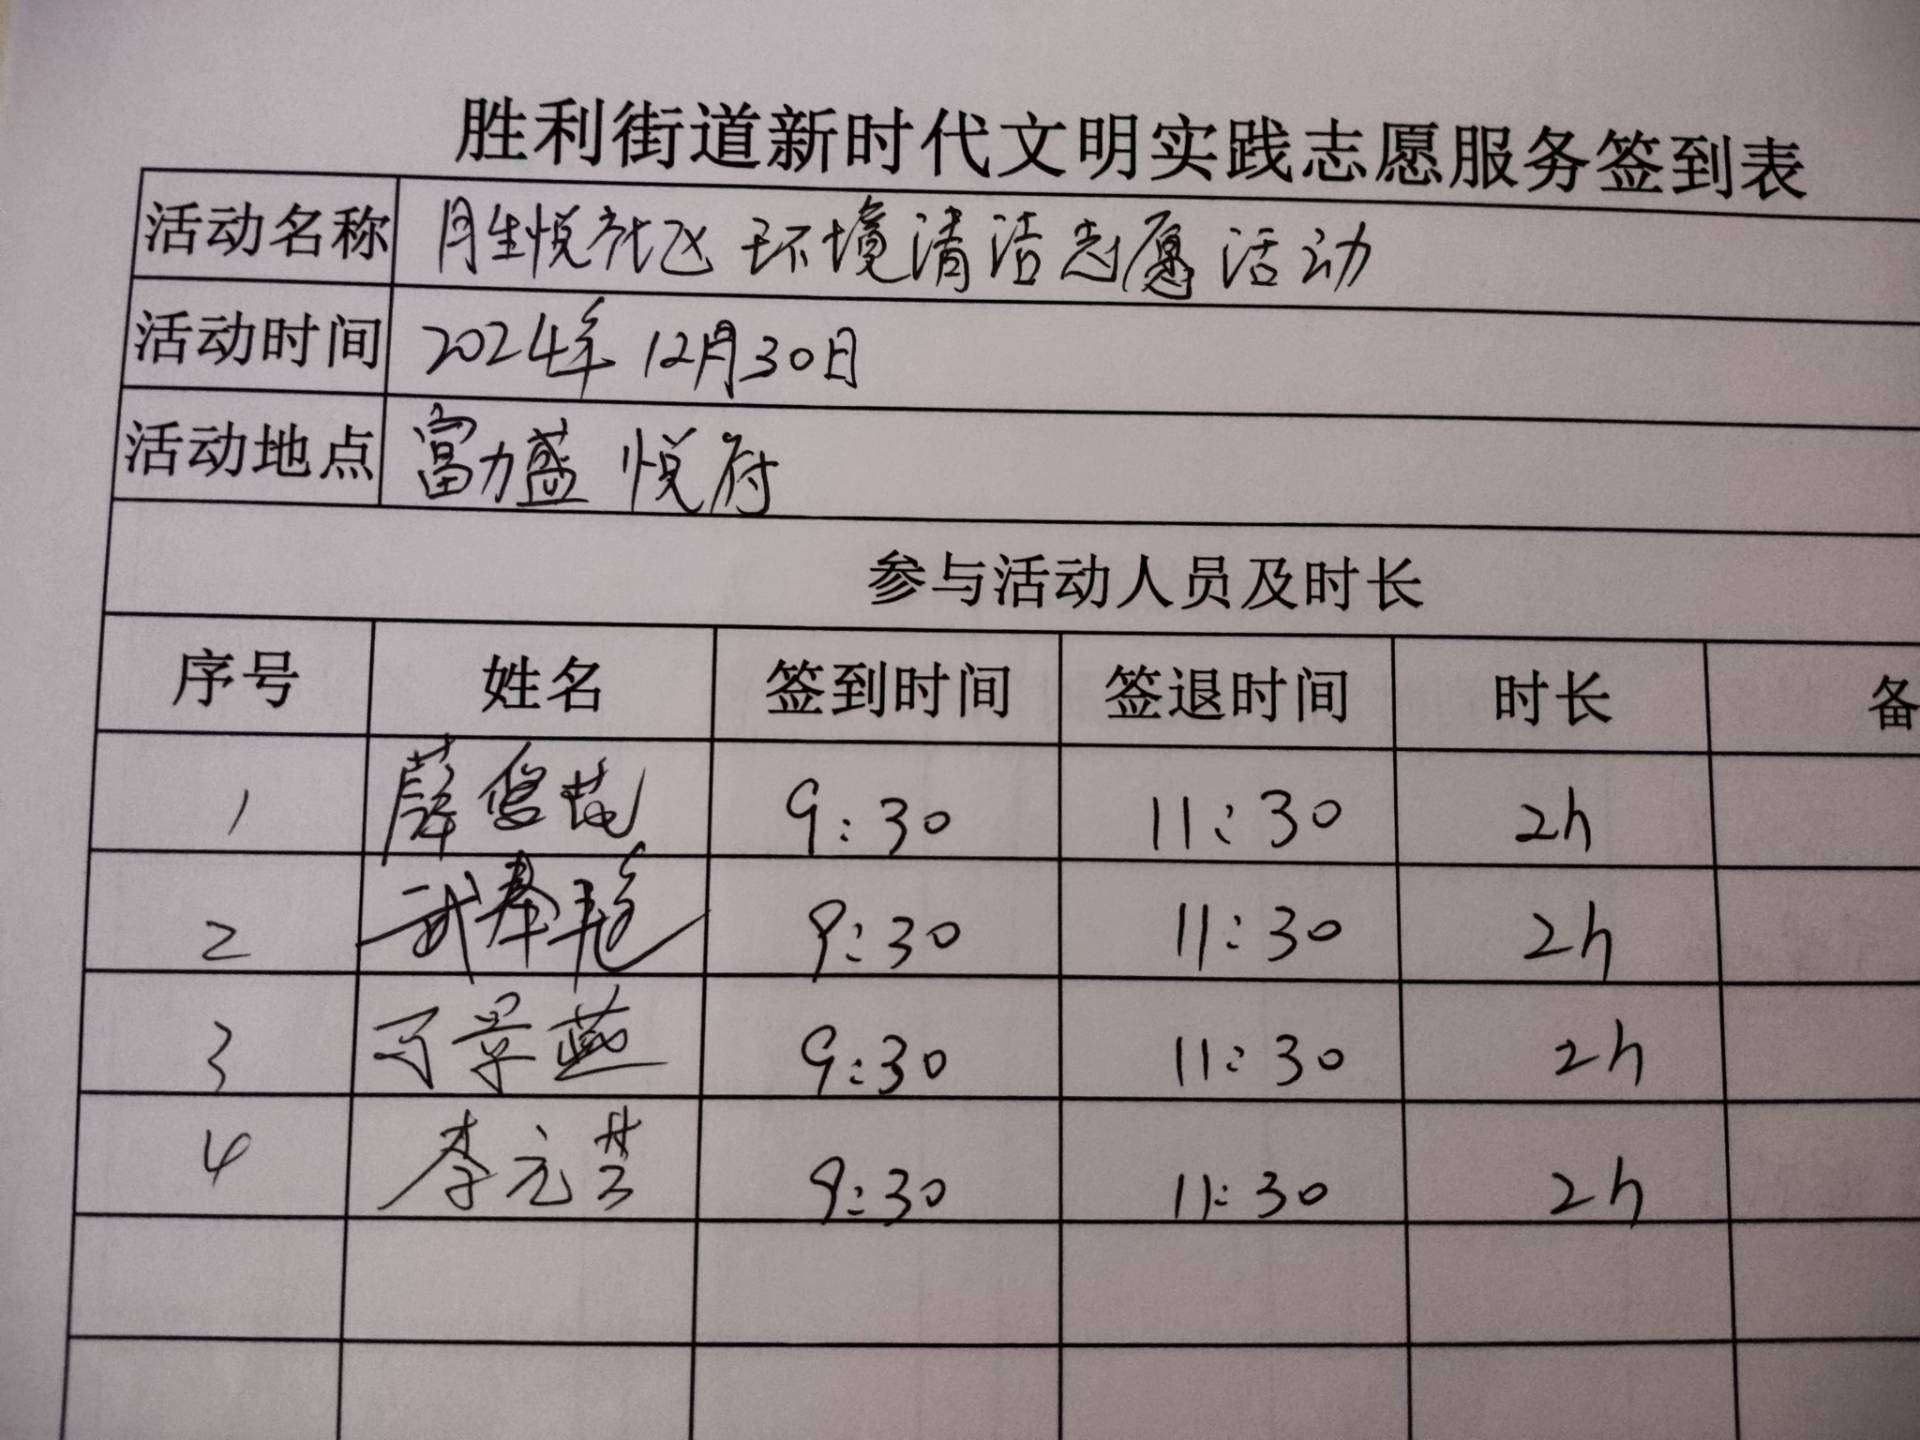 胜利街道新时代文明实践志愿服务签到表
活动名称 胜悦社区环境清洁志愿活动
活动时间 2024年12月30日
活动地点 富力盛悦府
参与活动人员及时长
序号 姓名 签到时间 签退时间 时长 备
1 薛 9:30 11:30 2h
2 武春艳 9:30 11:30 2h
3 景燕 9:30 11:30 2h
4 李元芸 9:30 11:30 2h